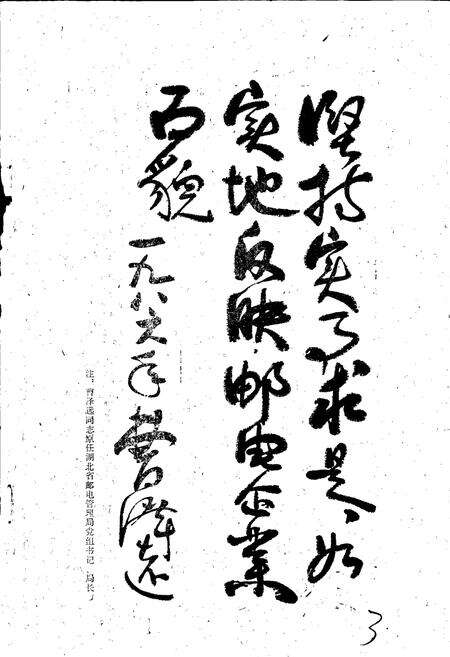 坚持实事求是、如
实地反映邮电企業
面貌
一九八六年 曹泽远
注：曹泽远同志原任湖北省邮电管理局党组书记、局长。
3